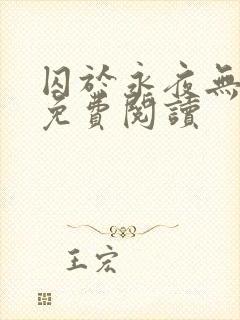 囚於永夜無
免費閱讀
王宏